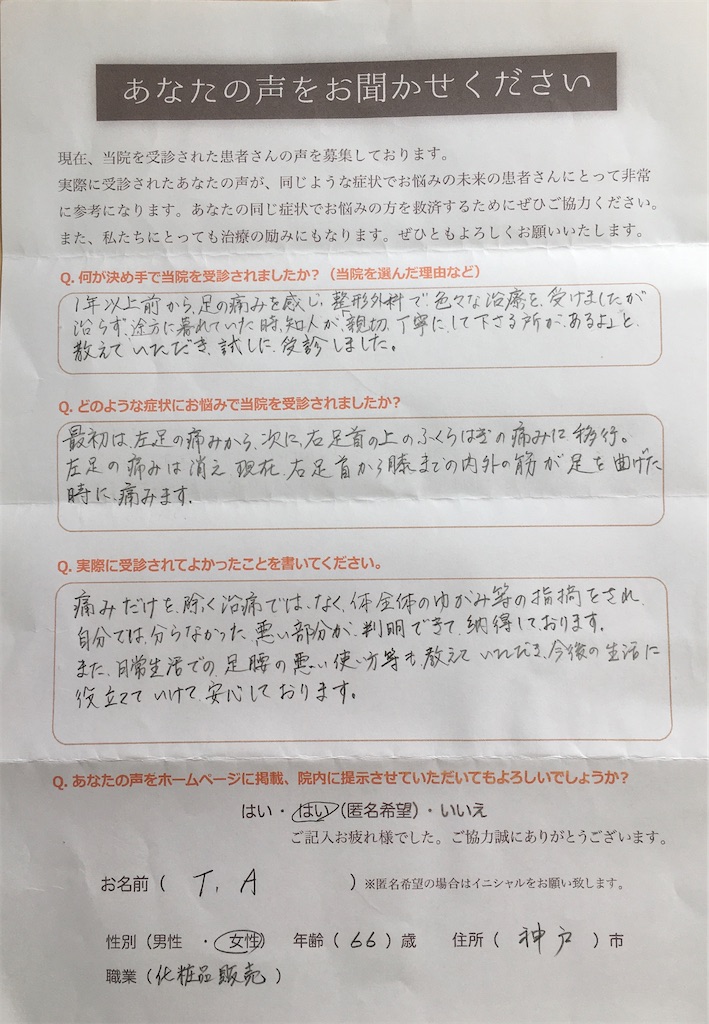 あなたの声をお聞かせください
現在、当院を受診された患者さんの声を募集しております。
実際に受診されたあなたの声が、同じような症状でお悩みの未来の患者さんにとって非常
に参考になります。あなたの同じ症状でお悩みの方を救済するためにぜひご協力ください。
また、私たちにとっても治療の励みにもなります。ぜひともよろしくお願いいたします。
Q. 何が決め手で当院を受診されましたか？（当院を選んだ理由など）
1年以上前から、足の痛みを感じ、整形外科で色々な治療を、受けましたが
治らず、途方に暮れていた時、知人が、「親切、丁寧に、して下さる所が、あるよ」と、
教えていただき、試しに、受診しました。
Q. どのような症状にお悩みで当院を受診されましたか？
最初は、左足の痛みから、次に、右足首の上のふくらはぎの痛みに移行。
左足の痛みは消え、現在、右足首から膝までの内外の筋が足を曲げた
時に、痛みます.
Q. 実際に受診されてよかったことを書いてください。
痛みだけを、除く治痛では、なく、体全体のゆがみ等の指摘をされ、
自分では、分らなかった、悪い部分が、判明できて、納得しております。
また、日常生活での、足腰の悪い使い方等も、教えて、いただき、今後の生活に
役立てていけて、安心しております。
Q. あなたの声をホームページに掲載、院内に提示させていただいてもよろしいでしょうか？
はい・はい（匿名希望）・いいえ
ご記入お疲れ様でした。ご協力誠にありがとうございます。
お名前（ T, A ）※匿名希望の場合はイニシャルをお願い致します。
性別（男性 ・女性） 年齢（ 66 ）歳 住所（ 神戸 ）市
職業（化粧品販売 ）